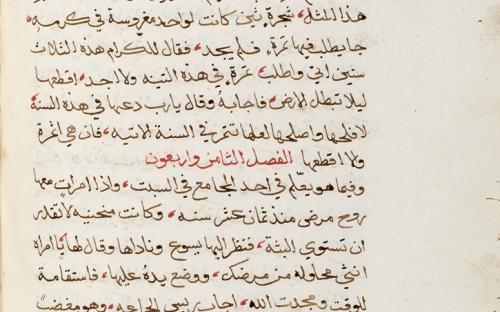 هذا المثل، شجرة تين كانت لواحد مغروسة في كرمه،
جا يطلب فيها ثمرة، فلم يجد، فقال للكرام هذه الثلاث
سنين اتي واطلب ثمرة في هذه التينه ولا اجد، اقطعها
ليلا تبطل الارض، فاجابه وقال يا رب دعها في هذه السنة
لافلحها واصلحها لعلها تثمر في السنة الاتيه، فان هي اثمرة
ولا اقطعها الفصل الثامن واربعون
وفيما هو يعلم في احد المجامع في السبت، واذا امراة معها
روح مرض منذ ثمان عشر سنه، وكانت منحنيه لا تقدر
ان تستوي البتة، فنظر اليها يسوع وناداها وقال لها يا امراه
انتي محلوله من مرضك، ووضع يده عليها، فاستقامة
للوقت ومجدت الله، اجاب ريس الجماعه، وهو مغضب